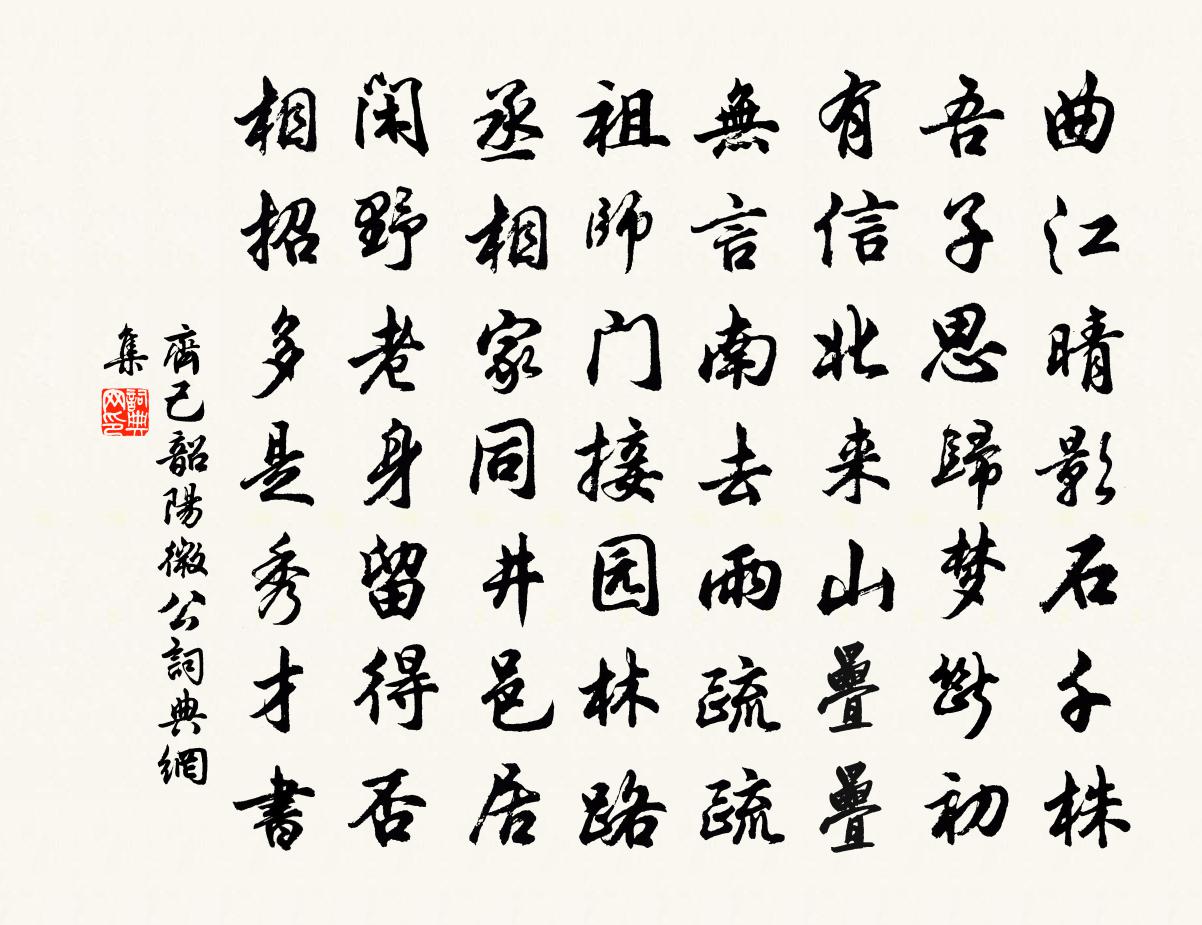 曲江晴影石千株
吾子思歸梦断初
有信北来山疊疊
無言南去雨疏疏
祖師门接园林路
丞相家同井邑居
闲野老身留得否
相招多是秀才書
齊己韶陽微公詞典網
集
詞典
网印